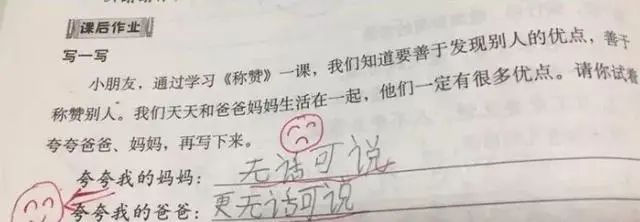 课后作业
写一写
小朋友，通过学习《称赞》一课，我们知道要善于发现别人的优点，善于
称赞别人。我们天天和爸爸妈妈生活在一起，他们一定有很多优点。请你试着
夸夸爸爸、妈妈，再写下来。
夸夸我的妈妈：无话可说
夸夸我的爸爸：更无话可说